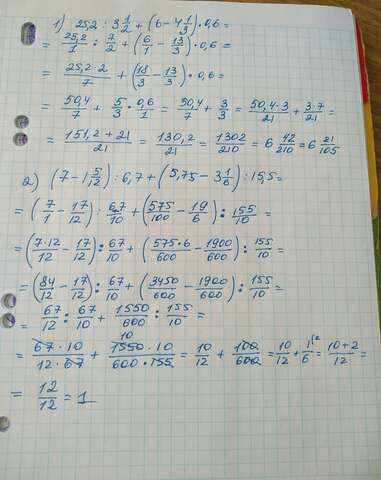 1) 25,2 : 3 1/2 + (6 - 4 1/3) · 0,6 =
= 25,2/1 : 7/2 + (6/1 - 13/3) · 0,6 =
= 25,2 · 2/7 + (18/3 - 13/3) · 0,6 =
= 50,4/7 + 5/3 · 0,6/1 = 50,4/7 + 3/3 = 50,4 · 3/21 + 3·7/21 =
= 151,2 + 21/21 = 130,2/21 = 1302/210 = 6 42/210 = 6 21/105
2) (7 - 1 5/12) : 6,7 + (5,75 - 3 1/6) : 15,5 =
= (7/1 - 17/12) : 67/10 + (575/100 - 19/6) : 155/10 =
= (7·12/12 - 17/12) : 67/10 + (575·6/600 - 1900/600) : 155/10 =
= (84/12 - 17/12) : 67/10 + (3450/600 - 1900/600) : 155/10 =
= 67/12 : 67/10 + 1550/600 : 155/10 =
= 67 · 10/12 · 67 + 1550 · 10/600 · 155 = 10/12 + 100/600 = 10/12 + 1/6 = 10+2/12 =
= 12/12 = 1